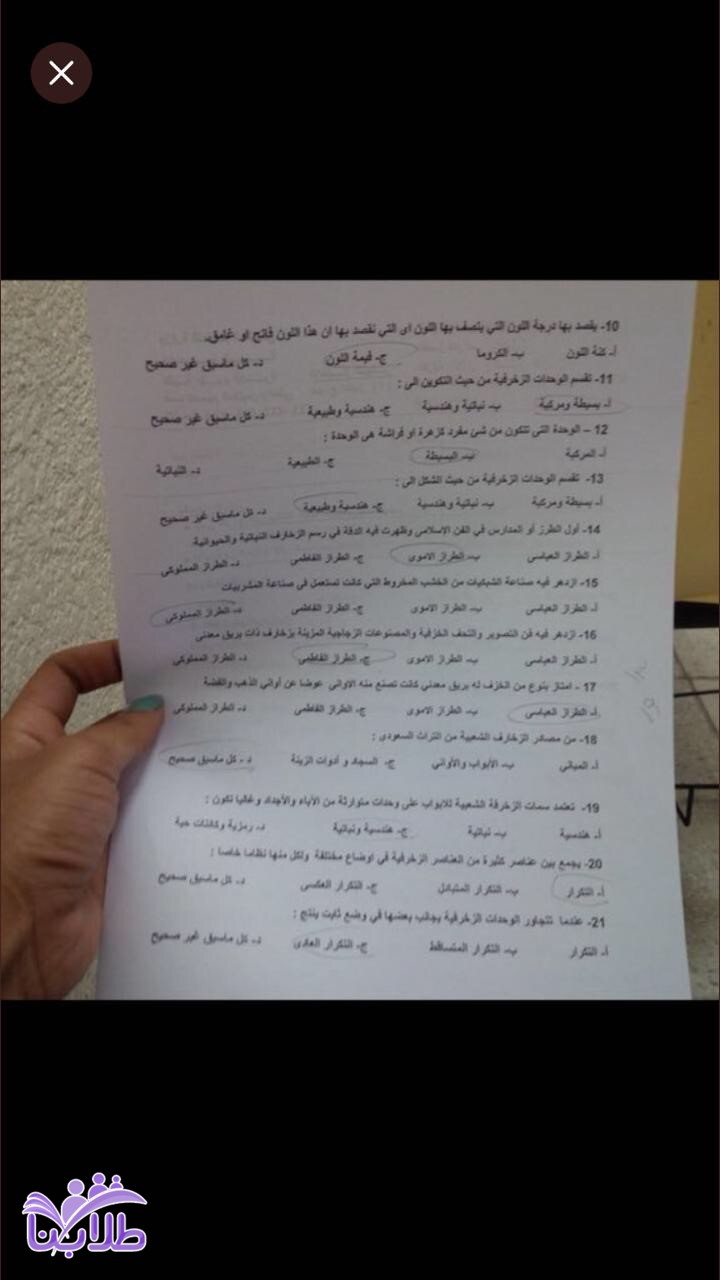 10- يقصد بها درجة اللون التي يتصف بها اللون اى التي نقصد بها ان هذا اللون فاتح او غامق.
أ- كنة اللون ب- الكروما ج- قيمة اللون د- كل ماسبق غير صحيح
11- تقسم الوحدات الزخرفية من حيث التكوين الى :
أ- بسيطة ومركبة ب- نباتية وهندسية ج- هندسية وطبيعية د- كل ماسبق غير صحيح
12 – الوحدة التى تتكون من شئ مفرد كزهرة او فراشة هى الوحدة :
أ- المركبة ب- البسيطة ج- الطبيعية د- النباتية
13- تقسم الوحدات الزخرفية من حيث الشكل الى :
أ- بسيطة ومركبة ب- نباتية وهندسية ج- هندسية وطبيعية د- كل ماسبق غير صحيح
14- أول الطرز أو المدارس في الفن الاسلامى وظهرت فيه الدقة في رسم الزخارف النباتية والحيوانية
أ- الطراز العباسى ب- الطراز الاموى ج- الطراز الفاطمى د- الطراز المملوكى
15- ازدهر فيه صناعة الشبكيات من الخشب المخروط التي كانت تستعمل في صناعة المشربيات
أ- الطراز العباسى ب- الطراز الاموى ج- الطراز الفاطمى د- الطراز المملوكى
16- ازدهر فيه فن التصوير والتحف الخزفية والمصنوعات الزجاجية المزينة بزخارف ذات بريق معدنى
أ- الطراز العباسى ب- الطراز الاموى ج- الطراز الفاطمى د- الطراز المملوكى
17 - امتاز بنوع من الخزف له بريق معدني كانت تصنع منه الاوانى عوضا عن أوانى الذهب والفضة
أ- الطراز العباسى ب- الطراز الاموى ج- الطراز الفاطمى د- الطراز المملوكى
18- من مصادر الزخارف الشعبية من التراث السعودى :
أ- المبانى ب- الأبواب والأوانى ج- السجاد و أدوات الزينة د- كل ماسبق صحيح
19- تعتمد سمات الزخرفة الشعبية للابواب على وحدات متوارثة من الأباء والأجداد وغالبا تكون :
أ- هندسية ب- نباتية ج- هندسية ونباتية د- رمزية وكائنات حية
20- يجمع بين عناصر كثيرة من العناصر الزخرفية في اوضاع مختلفة ولكل منها نظاما خاصا :
أ- التكرار ب- التكرار المتبادل ج- التكرار العكسى د- كل ماسبق صحيح
21- عندما تتجاور الوحدات الزخرفية بجانب بعضها في وضع ثابت ينتج :
أ- التكرار ب- التكرار المتساقط ج- التكرار العادى د- كل ماسبق غير صحيح
طلابنا